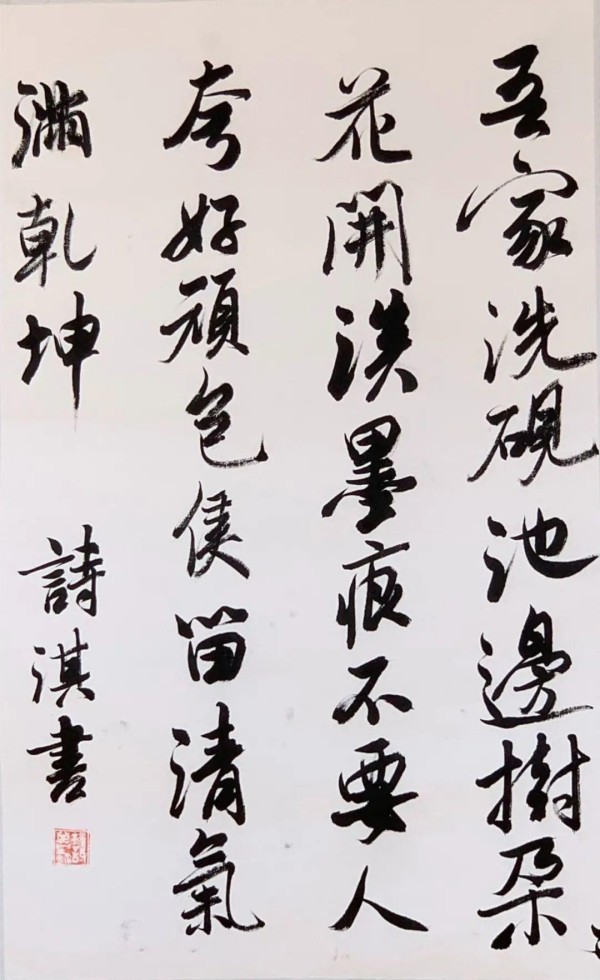 吾家洗硯池邊樹朵々
花開淡墨痕不要人
夸好顏色留清氣
滿乾坤
詩淇書